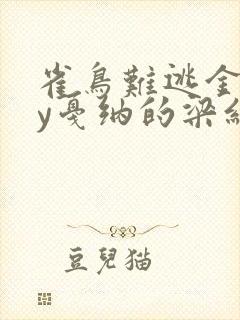 雀鳥難逃金
y戛纳的梁
豆兒猫